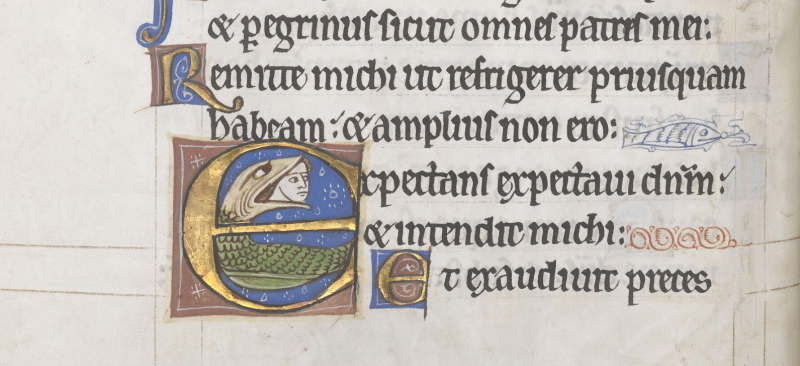 & pegrinus sicut omnes patres mei:
Remitte michi ut refrigerer priusquam
habeam: & amplius non ero:
Expectans expectaui dnm:
& intendit michi:
Et exaudiuit preces